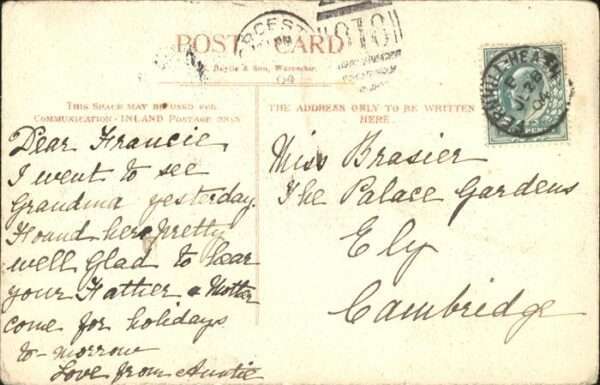 POST CARD
THIS SPACE MAY BE USED FOR
COMMUNICATION - INLAND POSTAGE ONLY
THE ADDRESS ONLY TO BE WRITTEN
HERE.
Dear Francie,
I went to see
Grandma yesterday.
Found her pretty
well Glad to hear
your Father & Mother
come for holidays
to-morrow
Love from Auntie
Miss Brasier
The Palace Gardens
Ely
Cambridge
FERNHILL-HEATH